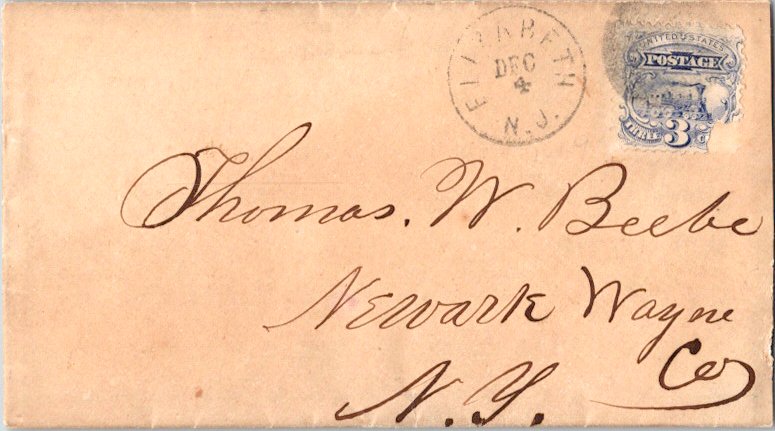 ELIZABETH
DEC
4
N.J.
UNITED STATES
POSTAGE
THREE 3
Thomas. W. Beebe
Newark Wayne
Co
N.Y.